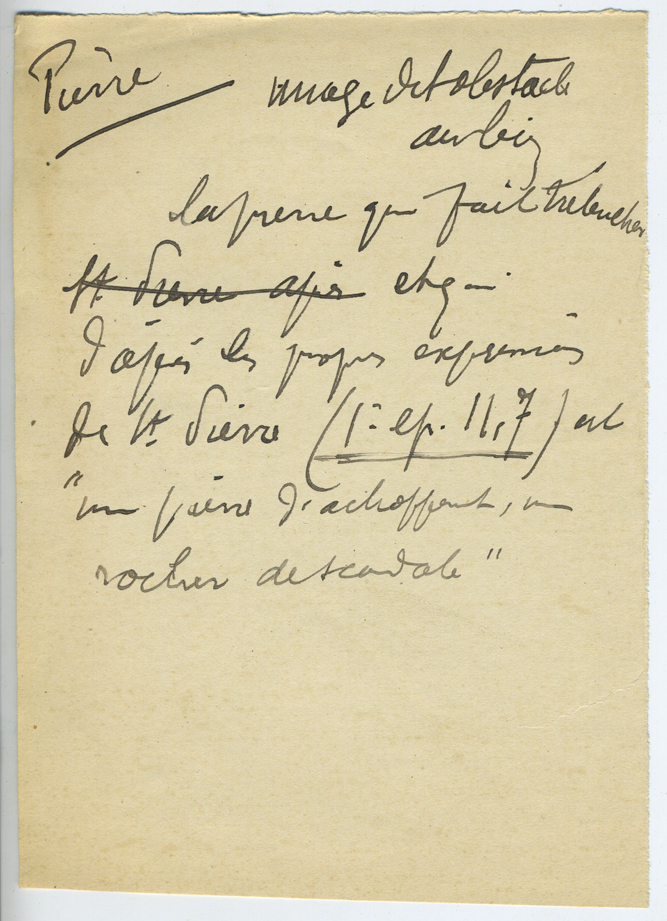 Pierre image de l'obstacle
au bien
la pierre qui fait trébucher
St Pierre après et qui
d'après les propres expressions
de St Pierre (1e ep. II, 7) est
"une pierre d'achoppement, un
rocher de scandale"